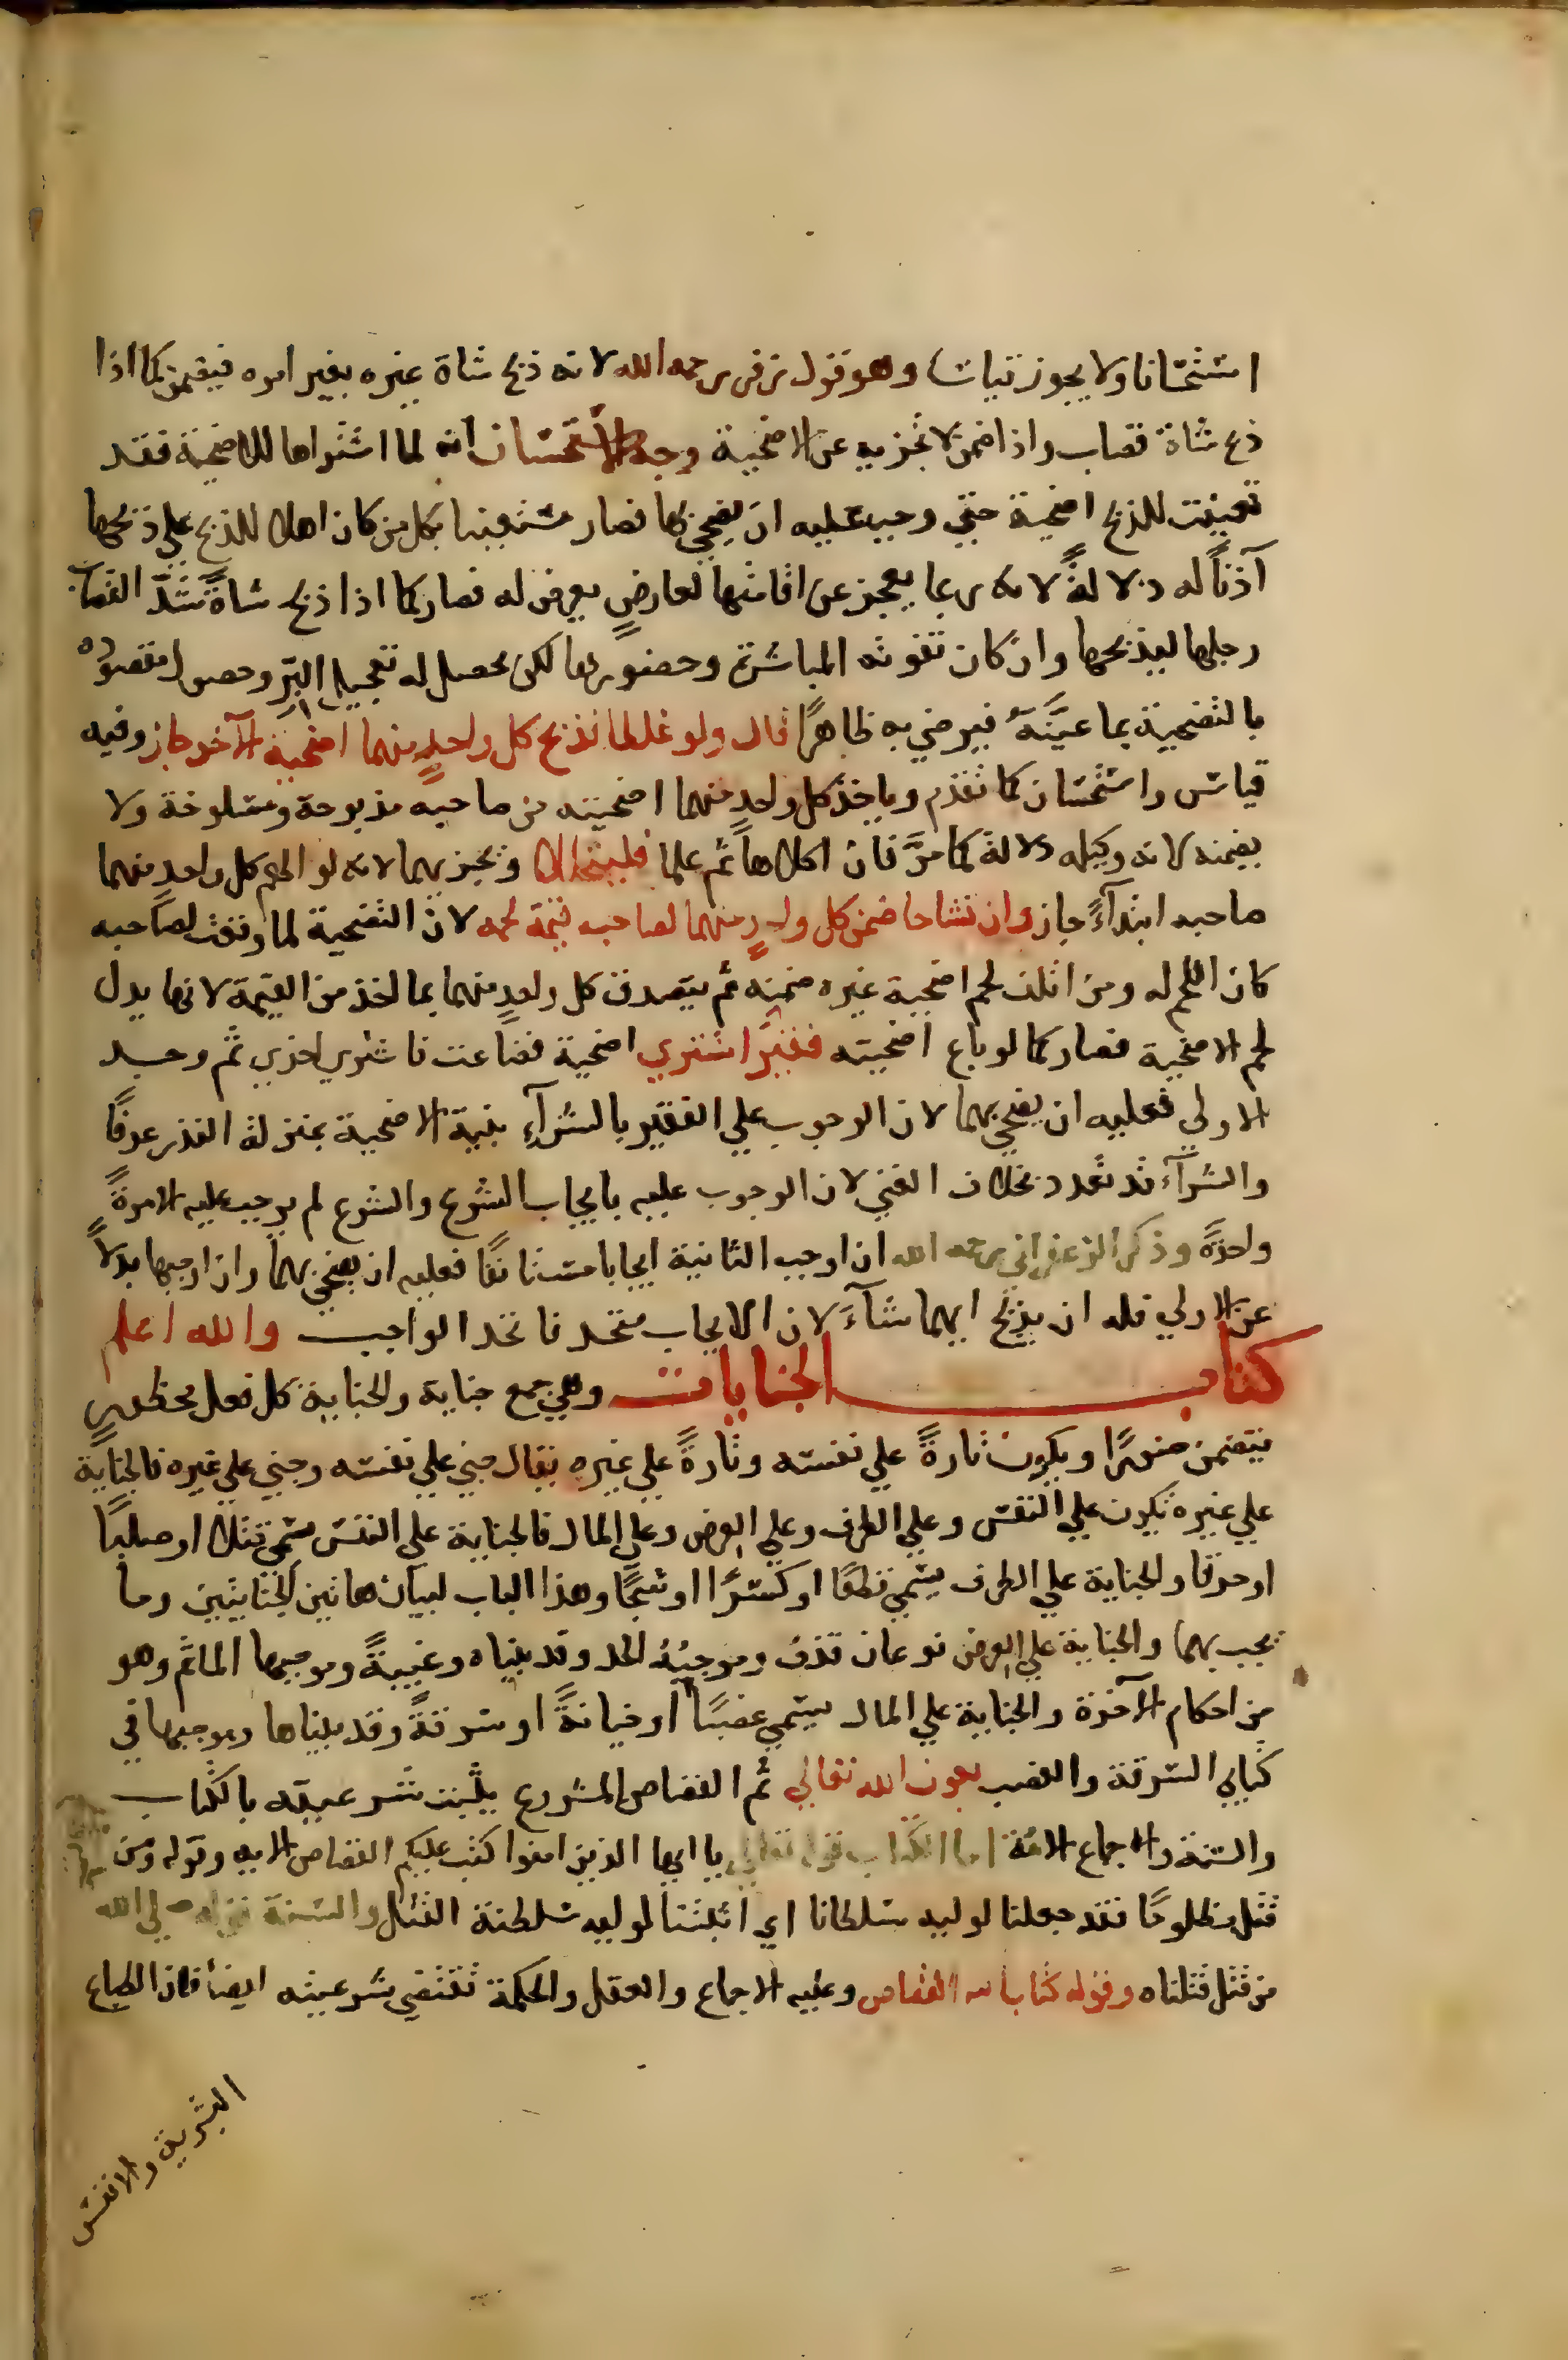 استحسانا ولا يجوز قياسا وهو قول زفر رحمه الله لانه ذبح شاة غيره بغير امره فيضمن كما اذا
ذبح شاة قصاب واذا ضمن لا تجزيه عن الاضحية وجه الاستحسان انه لما اشتراها للاضحية فقد
تعينت للذبح اضحية حتي وجب عليه ان يضحي بها فصار مستعينا بكل من كان اهلا للذبح علي ذبحها
آذناً له دلالةً لانه ربما يعجز عن اقامتها لعارضٍ يعرض له فصار كما اذا ذبح شاةً شدّ القصاب
رجلها ليذبحها وان كان تفوته المباشرة وحضورها لكن يحصل له تعجيل البرّ وحصول مقصوده
بالتضحية بما عيّنه فيرضي به ظاهرًا قال ولو غلطا فذبح كل واحدٍ منهما اضحية الآخر جاز وفيه
قياس واستحسان كما تقدم وياخذ كل واحدٍ منهما اضحيته من صاحبه مذبوحة ومسلوخة ولا
يضمنه لانه وكيله دلالة كما مرَّ فان اكلاها ثم علما فليتحالا وتجزيهما لانه لو اطعم كل واحدٍ منهما
صاحبه ابتدآءً جاز وان تشاحا ضمن كل واحدٍ منهما لصاحبه قيمة لحمه لان التضحية لما وقعت لصاحبه
كان اللحم له ومن اتلف لحم اضحية غيره ضمنه ثم يتصدق كل واحدٍ منهما بما اخذ من القيمة لانها بدل
لحم الاضحية فصار كما لو باع اضحيته فقيرٌ اشتري اضحية فضاعت فاشتري اخري ثم وجد
الاولي فعليه ان يضحي بهما لان الوجوب علي الفقير بالشرآءِ بنية الاضحية بمنزلة النذر عرفًا
والشرآء قد تعدد بخلاف الغني لان الوجوب عليه بايجاب الشرع والشرع لم يوجب عليه الامرةً
واحدةً وذكر الزعفراني رحمه الله ان اوجب الثانية ايجابا مستانفًا فعليه ان يضحي بهما وان اوجبها بدلاً
عن الاولي فله ان يذبح ايهما شآءَ لان الايجاب متحد فاتحد الواجب والله اعلم
كتاب الجنايات وهي جمع جناية والجناية كل فعل محظورٍ
يتضمن ضررًا ويكون تارةً علي نفسه وتارةً علي غيره يقال جني علي نفسه وجني علي غيره فالجناية
علي غيره تكون علي النفس وعلي الطرف وعلي العرض وعلي المال فالجناية علي النفس تسمي قتلا او صلبًا
او حرقا والجناية علي الطرف يسمي قطعًا او كسرًا او شجًا وهذا الباب لبيان هاتين الجنايتين وما
يجب بهما والجناية علي العرض نوعان قذف وموجبُهُ الحد وقد بيناه وغيبةً وموجبها الماثم وهو
من احكام الآخرة والجناية علي المال يسمي غصبًا او خيانةً او سرقةً وقد بيناها وموجبها في
كتابي السرقة والغصب بعون الله تعالي ثم القصاص المشروع يثبت شرعيته بالكتاب
والسنة والاجماع الامة اما الكتاب قوله تعالي يا ايها الذين امنوا كتب عليكم القصاص الايه وقوله ومن
قتل مظلومًا فقد جعلنا لوليه سلطانا اي اثبتنا لوليه سلطنة القتل والسنة قوله صلي الله
من قتل قتلناه وقوله كتاب الله القصاص وعليه الاجماع والعقل والحكمة تقتضي شرعيته ايضا فان الطباع
البشرية والانفس